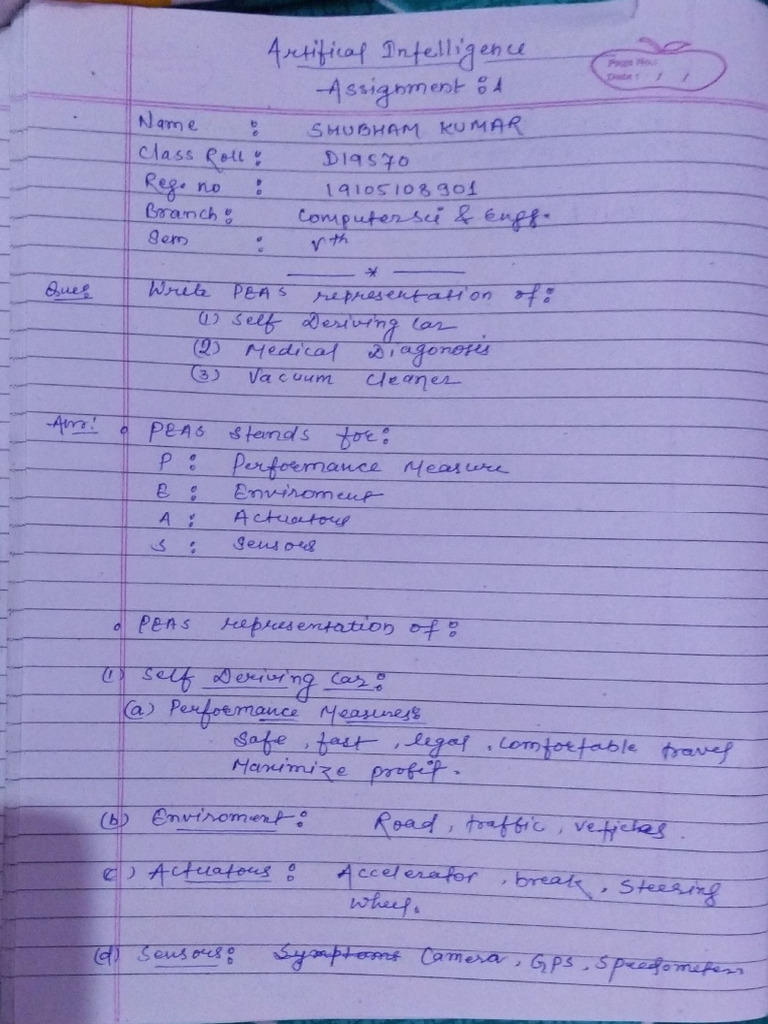 Artifical Intelligence
Assignment : 1
Page No.:
Date : / /
Name : SHUBHAM KUMAR
Class Roll : D19570
Reg. no : 19105108901
Branch : Computer Sci & Engg.
Sem : Vth
Ques Write PEAS representation of :
(1) Self Deriving Car
(2) Medical Diagonosis
(3) Vacuum Cleaner
Ans: PEAS stands for :
P : Performance Measure
E : Enviroment
A : Actuators
S : Sensors
PEAS representation of :
(1) Self Deriving Car :
(a) Performance Measures
Safe, fast, legal, comfortable travel
Maximize profit.
(b) Enviroment : Road, traffic, vehicles.
c) Actuators : Accelerator, break, Steering
wheel.
(d) Sensors : Symptoms Camera, GPS, Speedometer